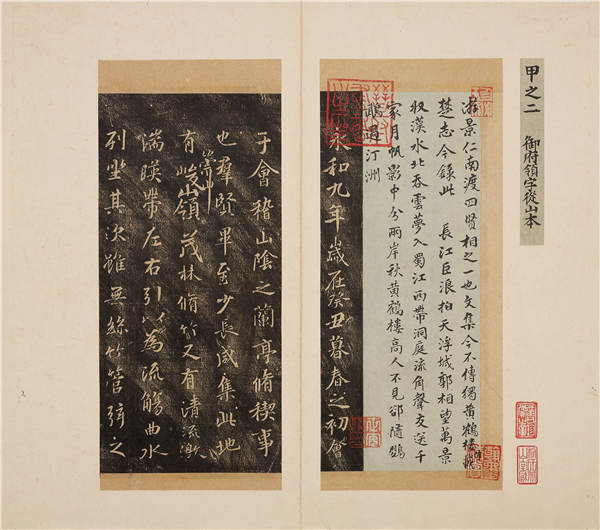 甲之二　御府領字從山本
游景仁南渡四賢相之一也文集今不傳獨黃鶴樓
楚志今錄此　長江巨浪拍天浮城郭相望萬景
收漢水北吞雲夢入蜀江西帶洞庭流角聲交送千
家月帆影中分兩岸秋黃鶴樓高人不見卻隨鸚
鵡過汀洲
永和九年歲在癸丑暮春之初會
于會稽山陰之蘭亭脩稧事
也羣賢畢至少長咸集此地
有崇山峻嶺茂林脩竹又有清流激
湍暎帶左右引以為流觴曲水
列坐其次雖無絲竹管弦之